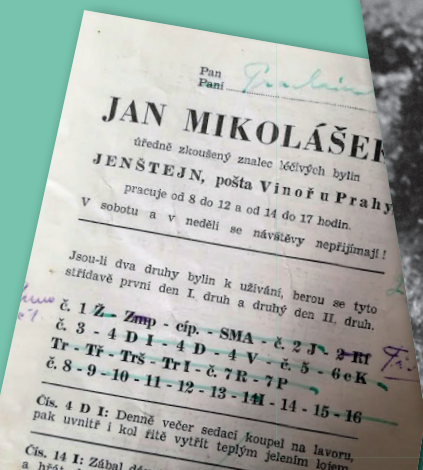 Pan
Paní
JAN MIKOLÁŠEK
úředně zkoušený znalec léčivých bylin
JENŠTEJN, pošta Vinoř u Prahy
pracuje od 8 do 12 a od 14 do 17 hodin.
V sobotu a v neděli se návštěvy nepřijímají!
Jsou-li dva druhy bylin k užívání, berou se tyto
střídavě první den I. druh a druhý den II. druh.
č. 1 Ž - Zmp - číp. - SMA - č. 2 J - 2 Rf
č. 3 - 4 D I - 4 D - 4 V - č. 5 - 6 e K
Tr - Tř - Trš - Tr I - č. 7 R - 7 P
č. 8 - 9 - 10 - 11 - 12 - 13 - 14 I - 14 - 15 - 16
Čís. 4 D I: Denně večer sedací koupel na lavoru,
pak uvnitř i kol řitě vytřít teplým jelením lojem
Čís. 14 I: Zábal
a hřát